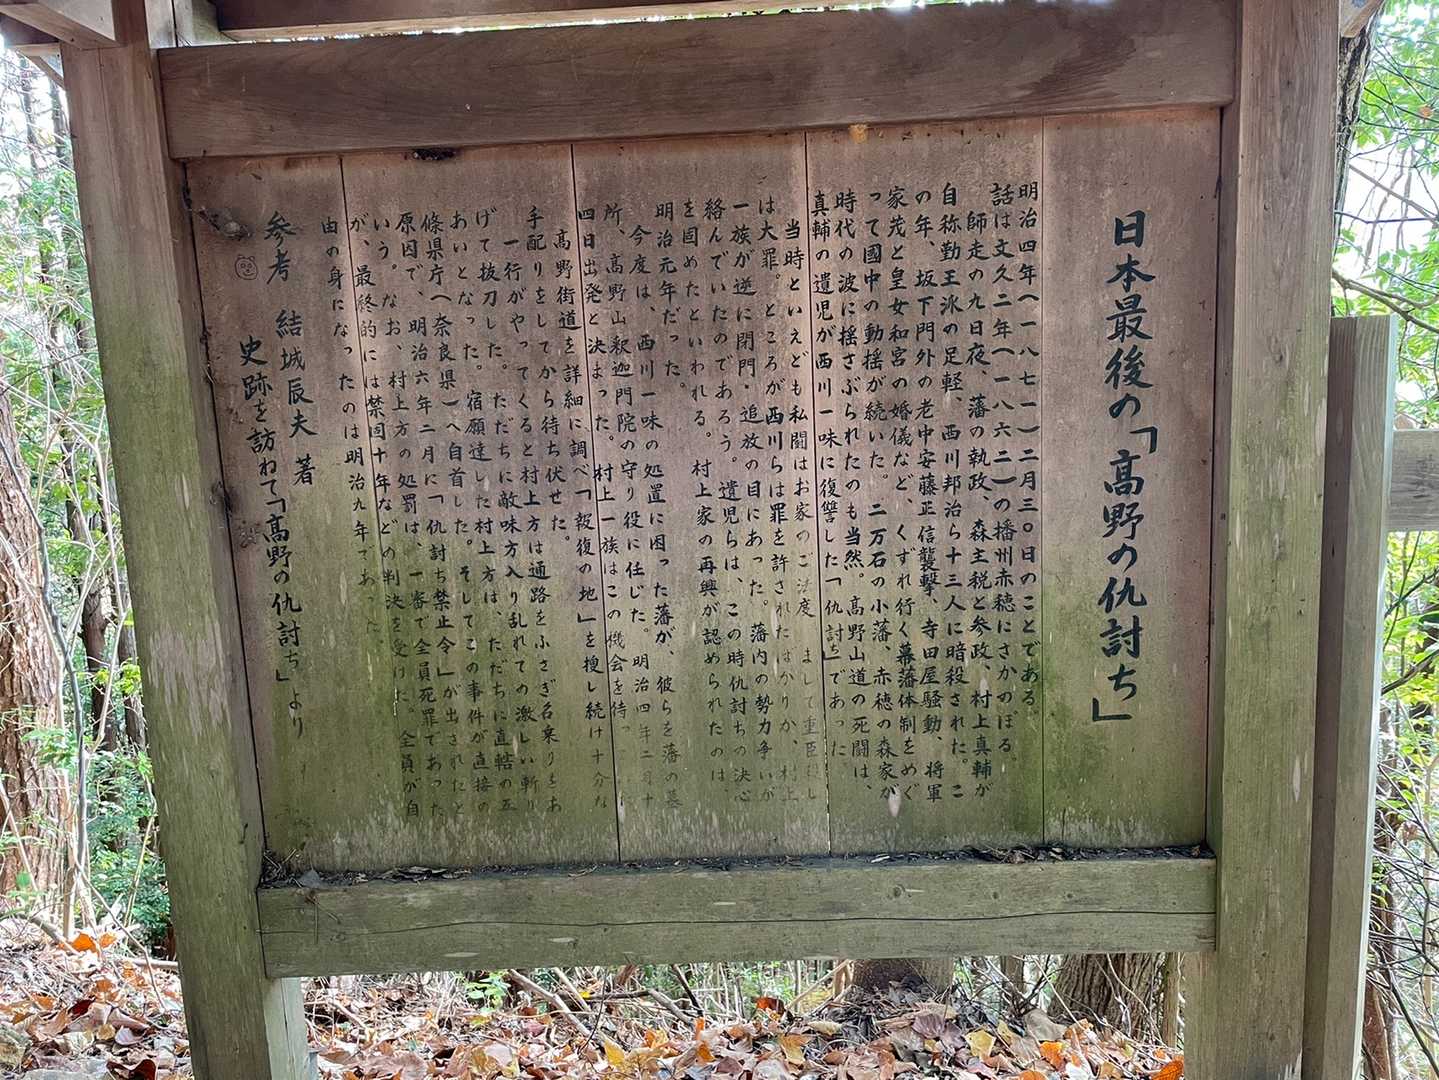 日本最後の「高野の仇討ち」
明治四年(一八七一)二月三〇日のことである。
話は文久二年(一八六二)の播州赤穂にさかのぼる。
師走の九日夜、藩の執政、森主税と参政、村上真輔が
自称勤王派の足軽、西川邦治ら十三人に暗殺された。こ
の年、坂下門外の老中安藤正信襲撃、寺田屋騒動、将軍
家茂と皇女和宮の婚儀など、くずれ行く幕藩体制をめぐ
って國中の動揺が続いた。二万石の小藩、赤穂の森家が
時代の波に揺さぶられたのも当然。高野山道の死闘は、
真輔の遺児が西川一味に復讐した「仇討ち」であった。
当時といえども私闘はお家のご法度 まして重臣殺し
は大罪。ところが西川らは罪を許されたばかりか、村上
一族が逆に閉門・追放の目にあった。藩内の勢力争いが
絡んでいたのであろう。遺児らは、この時仇討ちの決心
を固めたといわれる。村上家の再興が認められたのは、
明治元年だった。
今度は、西川一味の処置に困った藩が、彼らを藩の墓
所、高野山釈迦門院の守り役に任じた。明治四年二月十
四日出発と決まった。村上一族はこの機会を待っ
高野街道を詳細に調べ「報復の地」を捜し続け十分な
手配りをしてから待ち伏せた。
一行がやってくると村上方は通路をふさぎ名乗りをあ
げて抜刀した。ただちに敵味方入り乱れての激しい斬り
あいとなった。宿願達した村上方は、ただちに直轄の五
條県庁(奈良県)へ自首した。そしてこの事件が直接の
原因で、明治六年二月に「仇討ち禁止令」が出されたと
いう。なお、村上方の処罰は、一審で全員死罪であった
が、最終的には禁固十年などの判決を受けた。全員が自
由の身になったのは明治九年であった。
参考 結城辰夫 著
史跡を訪ねて「高野の仇討ち」より